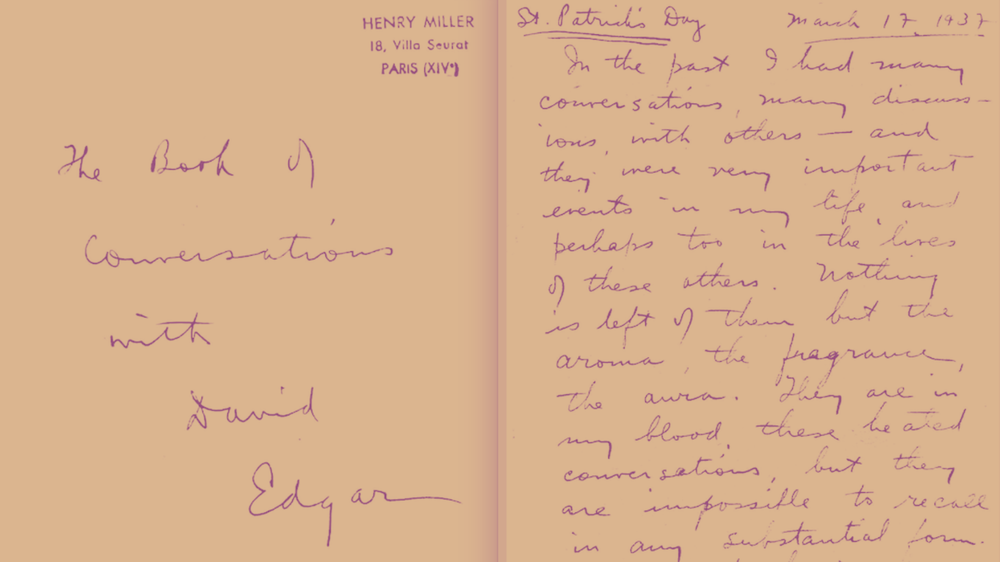 HENRY MILLER
18, Villa Seurat
PARIS (XIVᵉ)
The Book of
Conversations
with
David
Edgar
St. Patrick's Day March 17, 1937
In the past I had many
conversations, many discuss-
ions, with others — and
they were very important
events in my life, and
perhaps too in the lives
of these others. Nothing
is left of them but the
aroma, the fragrance,
the aura. They are in
my blood, these heated
conversations, but they
are impossible to recall
in any substantial form.